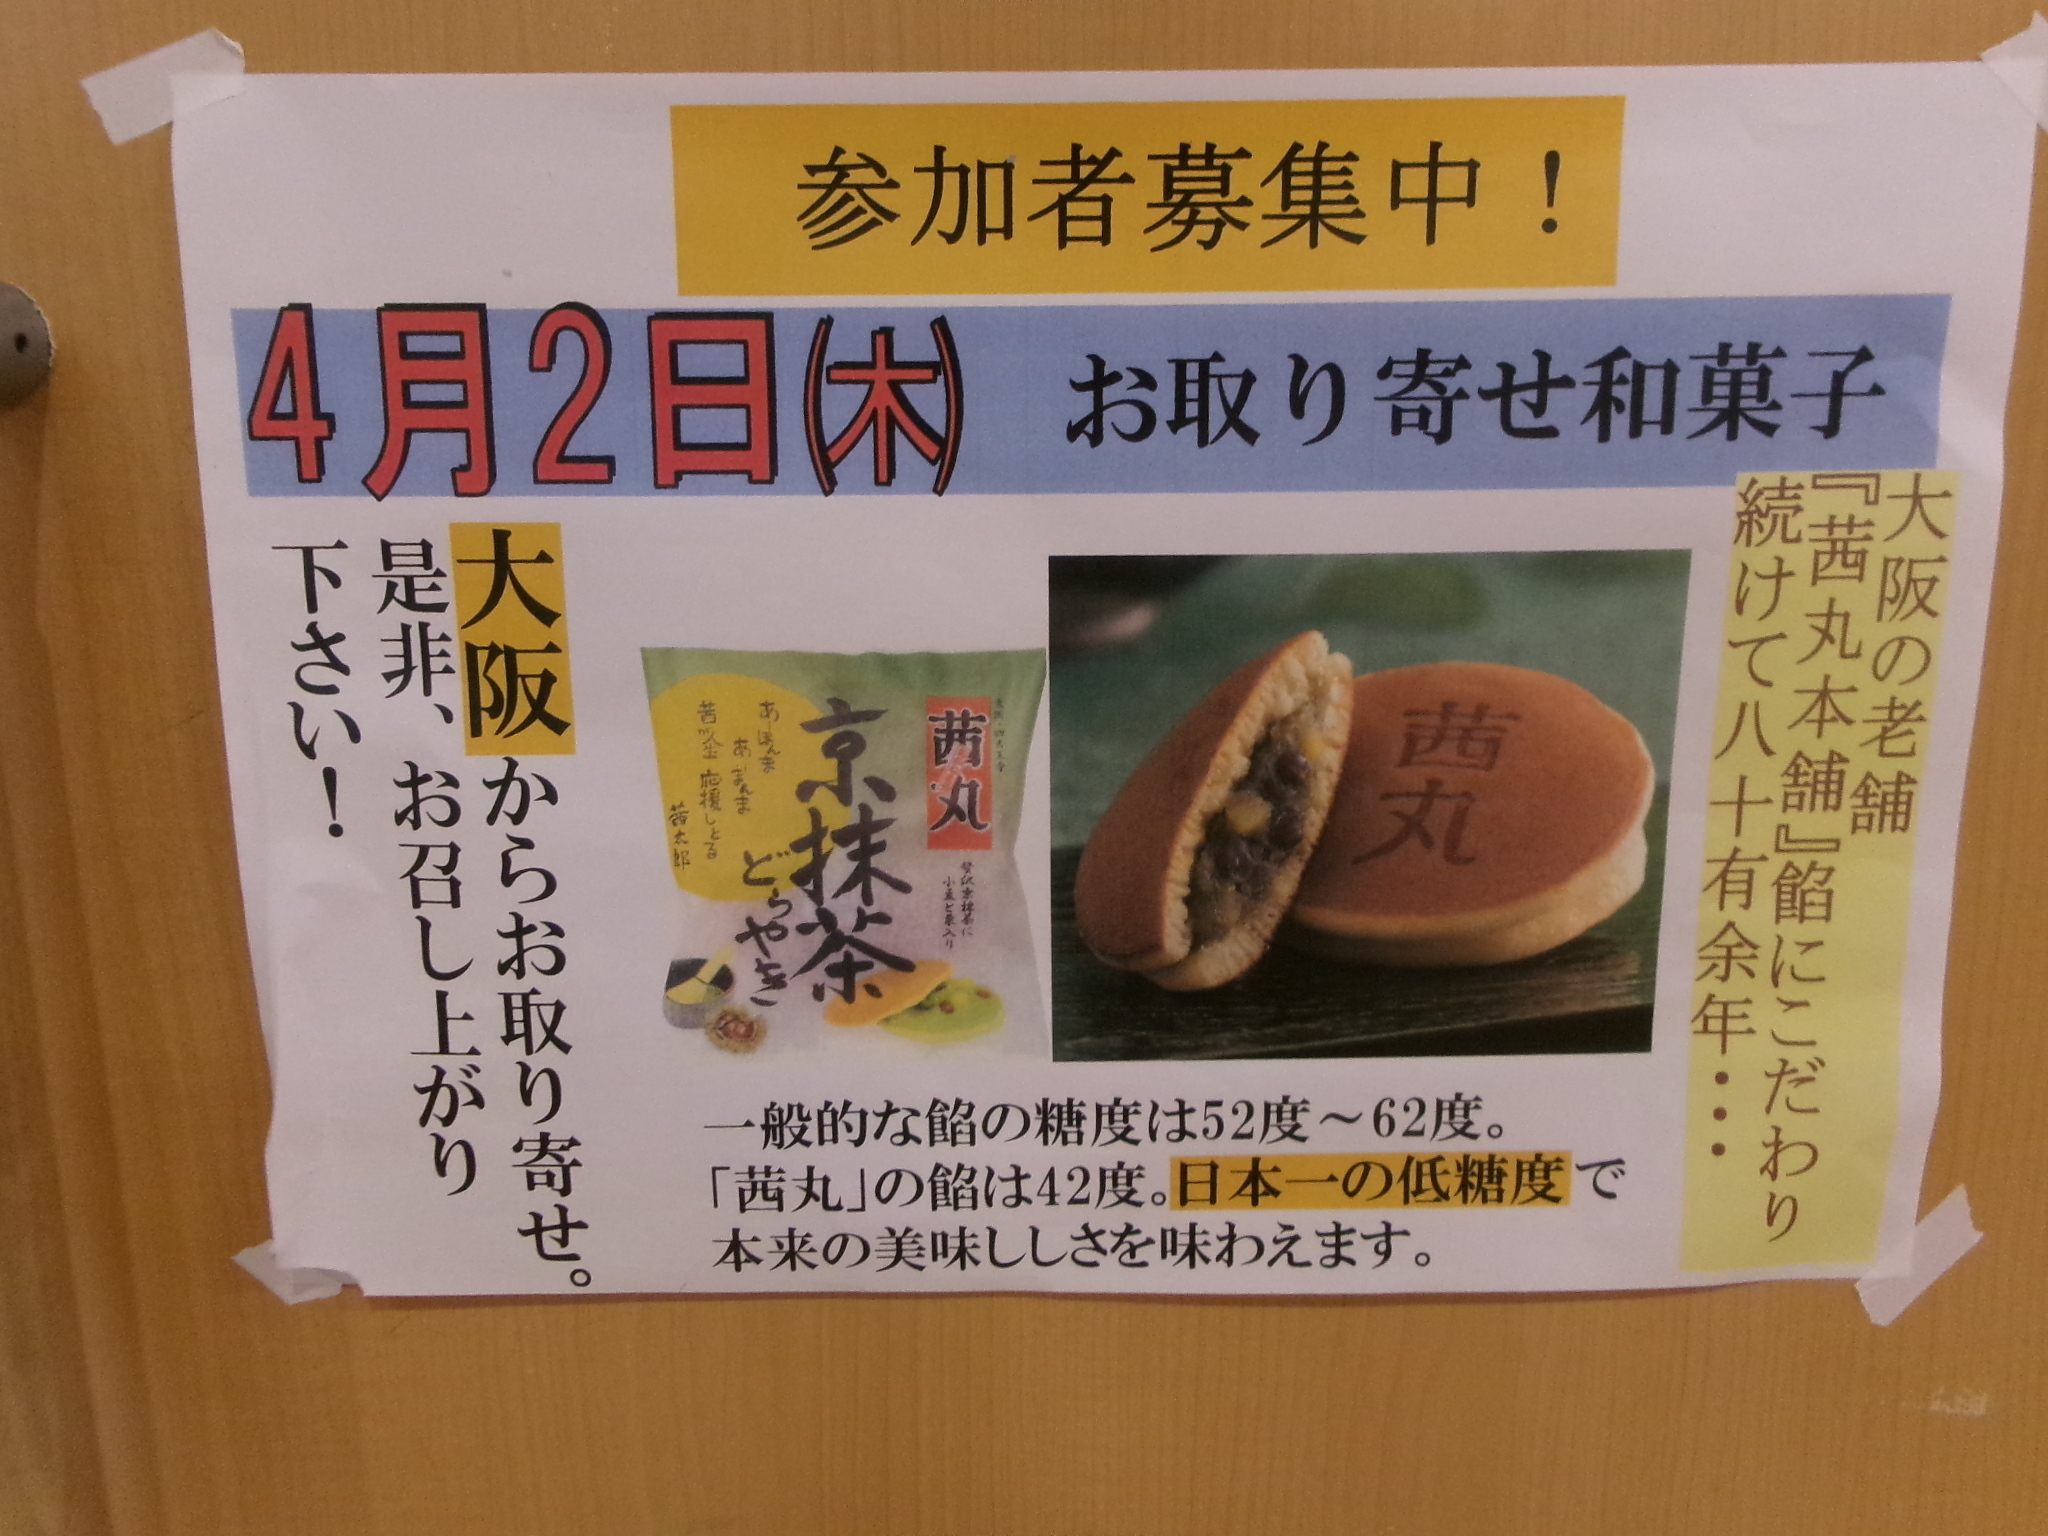 参加者募集中！
4月2日㈭
お取り寄せ和菓子
大阪の老舗
『茜丸本舗』餡にこだわり
続けて八十有余年・・・
大阪からお取り寄せ。
是非、お召し上がり
下さい！
茜丸
京抹茶
どらやき
贅沢京抹茶に
小豆と栗入り
あほんま
あまんま
応援しとる
茜太郎
茜丸
一般的な餡の糖度は52度～62度。
「茜丸」の餡は42度。日本一の低糖度で
本来の美味ししさを味わえます。